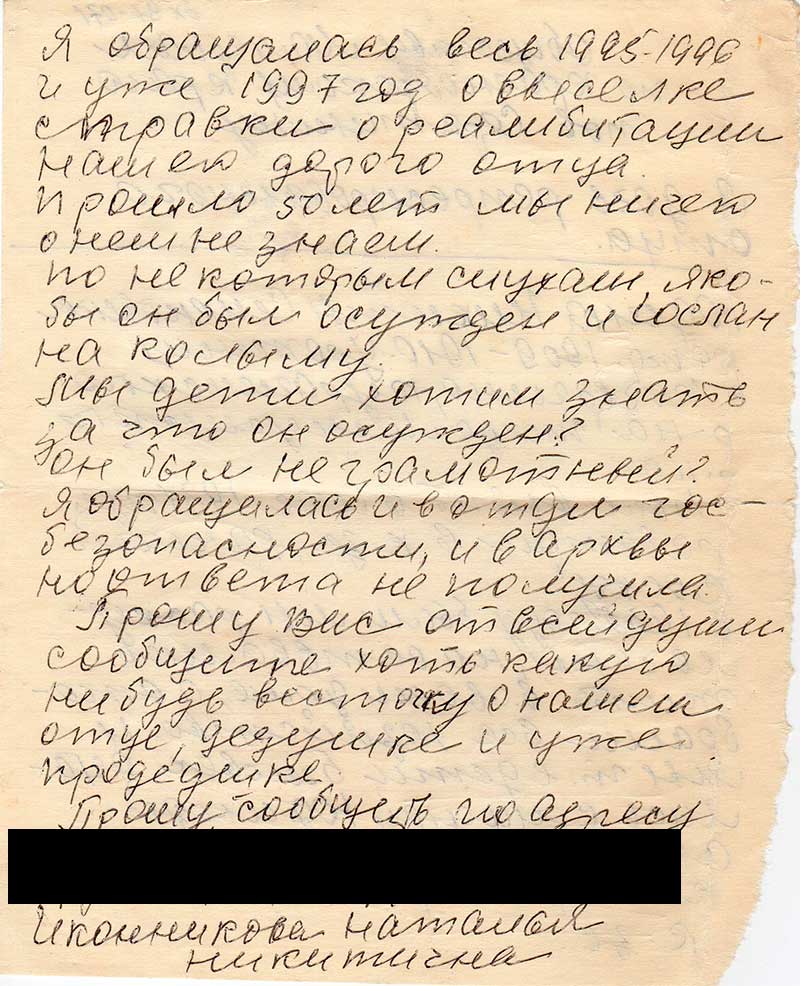 Я обращалась весь 1995-1996
и уже 1997 год о ввсслке
справки о реалибитации
нашего дорого отца.
Прошло 50 лет мы ничего
о нем не знаем.
по некоторым слухам, яко-
бы он был осужден и сослан
на колыму.
Мы дети хотим знать
за что он осужден?
он был не грамотней?
Я обращалась и в отдел гос-
безопасности, и в архвы
но ответа не получила.
Прошу вас от всей души
сообщите хоть какую
нибудь весточку о нашем
отце, дедушке и уже
продедшке
Прошу сообщить по адресу
Иконникова Наталья
никитична